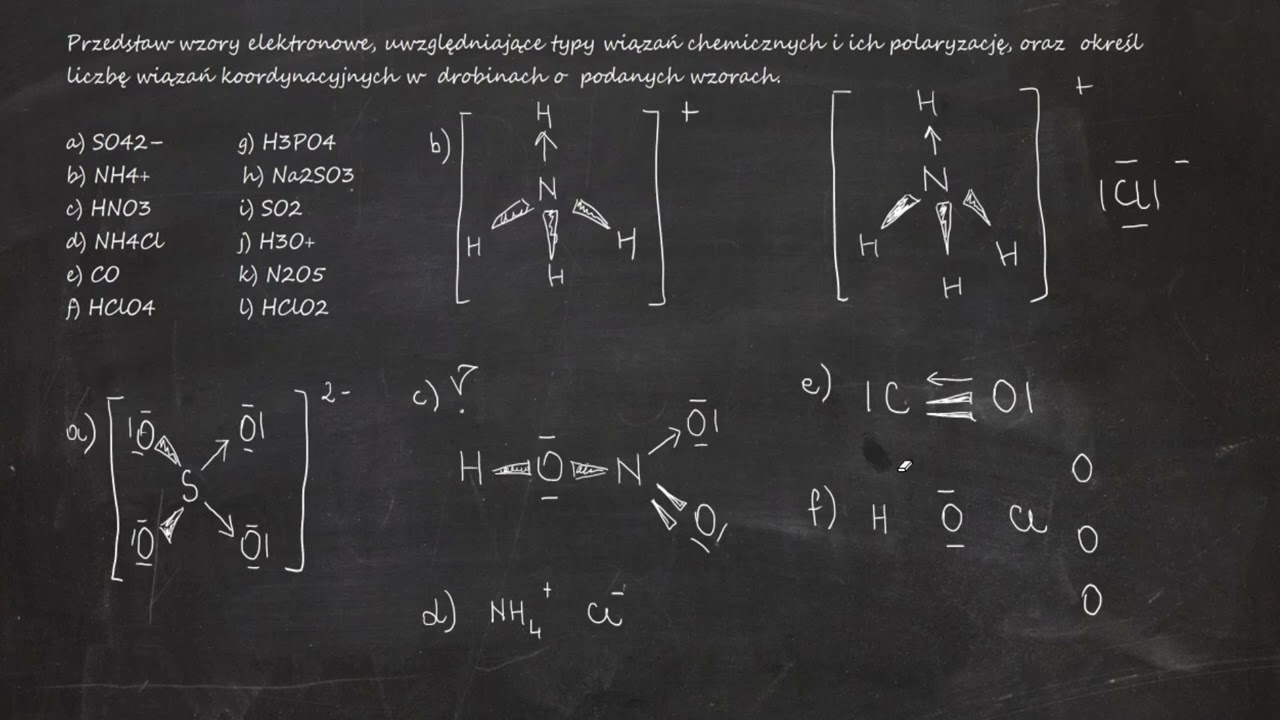 Przedstaw wzory elektronowe, uwzględniające typy wiązań chemicznych i ich polaryzację, oraz określ
liczbę wiązań koordynacyjnych w drobinach o podanych wzorach.
a) SO42-
b) NH4+
c) HNO3
d) NH4Cl
e) CO
f) HClO4
g) H3PO4
h) Na2SO3
i) SO2
j) H3O+
k) N2O5
l) HClO2
b) +
H
N
H H
H
+
H
N
H H
H
|Cl| -
a) 2-
|O O|
S
|O O|
c) ?
O|
H O N
O
d) NH4+ Cl-
e) |C O|
f) H O Cl O
O
O